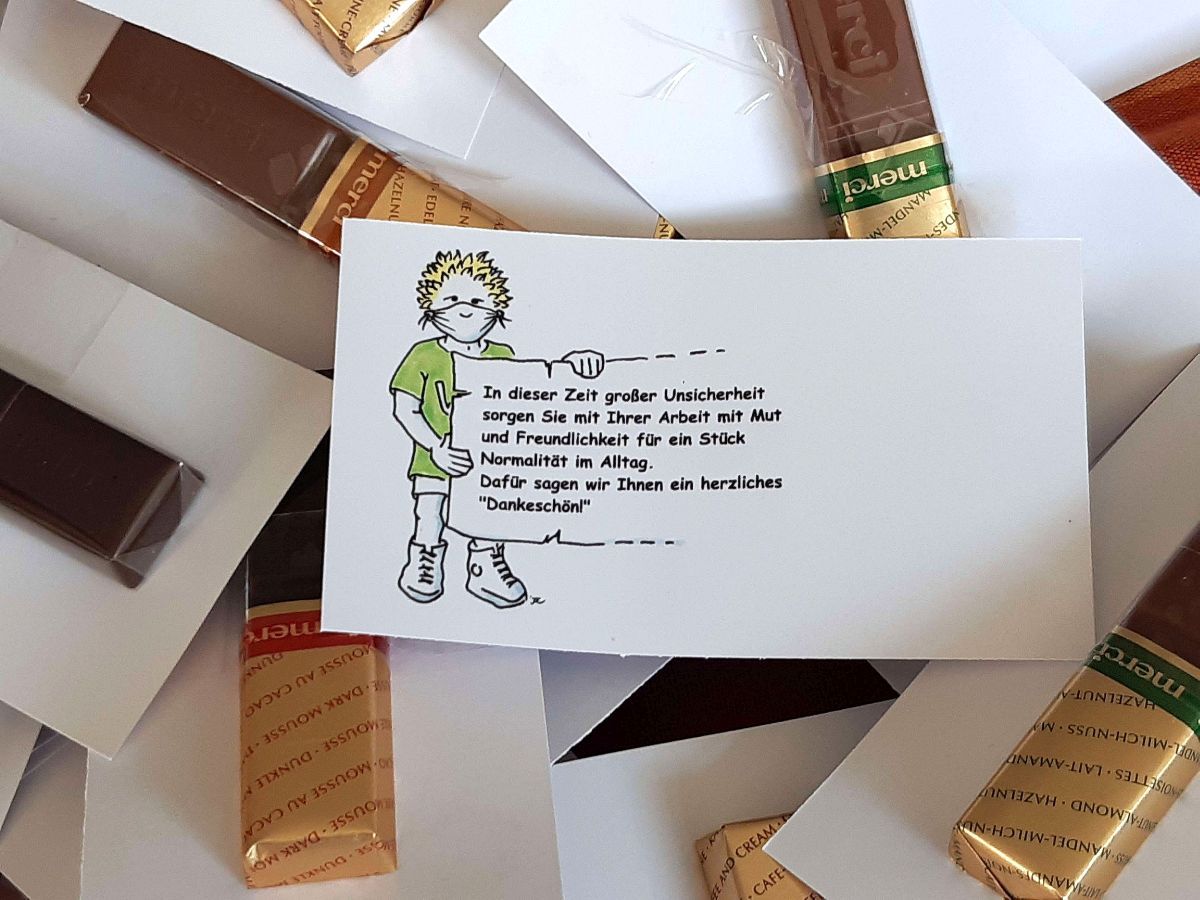 NE-CR
merci
HAZELNU
EDEL
merci
merci
MANDEL-M
In dieser Zeit großer Unsicherheit
sorgen Sie mit Ihrer Arbeit mit Mut
und Freundlichkeit für ein Stück
Normalität im Alltag.
Dafür sagen wir Ihnen ein herzliches
"Dankeschön!"
merci
MOUSSE · DUNKL
MOUSSE AU CACAO
DARK MOUSSE ·
MOUSSE · DUNKLE M
MOUSSE AU CACA
DARK MO
merci
HAZELNUT-A
DEL-MILCH-NUSS · MA
NOISETTES · LAIT-AMAND
NUT-ALMOND · HAZELNU
MANDEL-MILCH-NU
AMANDES-NOI
E AND CREAM ·
CAFE-